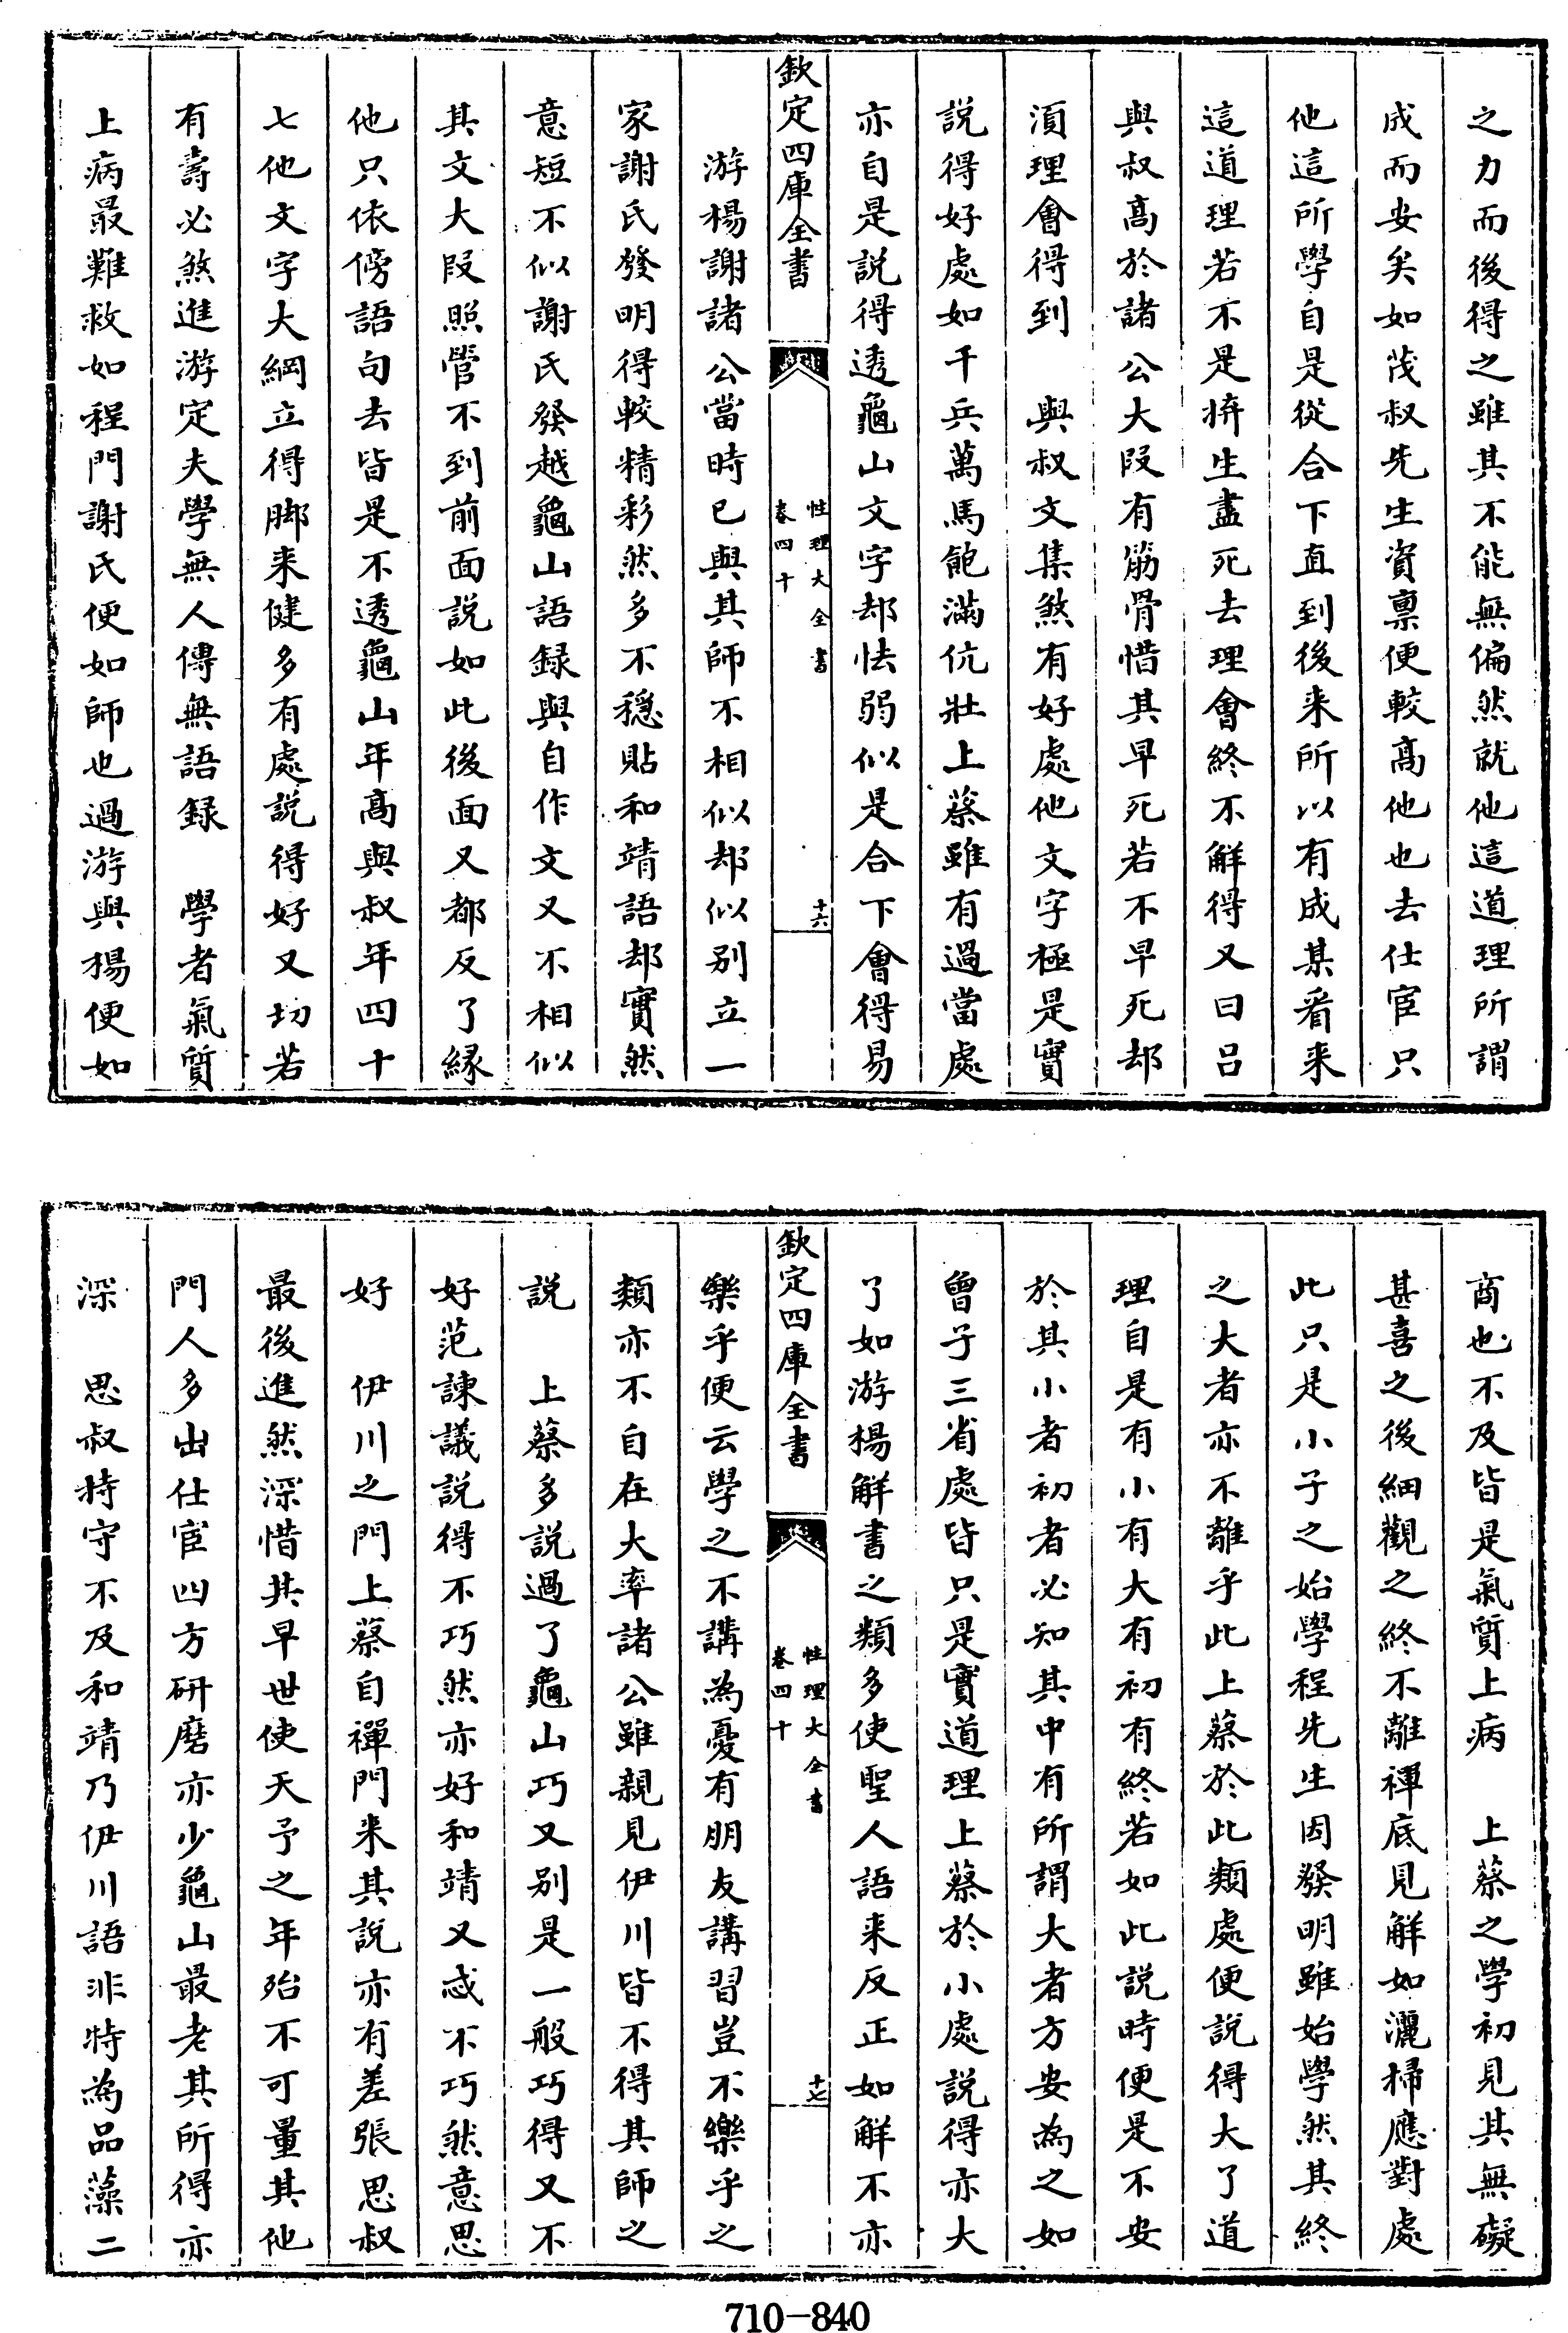 之力而後得之雖其不能無偏然就他這道理所謂
成而安矣如茂叔先生資稟便較髙他也去仕宦只
他這所學自是從合下直到後来所以有成某看来
這道理若不是拚生盡死去理會終不解得又曰吕
與叔髙於諸公大段有筋骨惜其早死若不早死却
湏理會得到　與叔文集煞有好處他文字極是實
説得好處如千兵萬馬飽滿伉壯上蔡雖有過當處
亦自是説得透龜山文字却怯弱似是合下會得易
欽定四庫全書
性理大全書
卷四十
十六
游楊謝諸公當時已與其師不相似却似别立一
家謝氏發明得較精彩然多不穏貼和靖語却實然
意短不似謝氏發越龜山語録與自作文又不相似
其文大段照管不到前面説如此後面又都反了縁
他只依傍語句去皆是不透龜山年髙與叔年四十
七他文字大綱立得脚来健多有處説得好又切若
有壽必煞進游定夫學無人傳無語録　學者氣質
上病最難救如程門謝氏便如師也過游與楊便如
商也不及皆是氣質上病　上蔡之學初見其無礙
甚喜之後細觀之終不離禪底見解如灑掃應對處
此只是小子之始學程先生因發明雖始學然其終
之大者亦不離乎此上蔡於此類處便説得大了道
理自是有小有大有初有終若如此説時便是不安
於其小者初者必知其中有所謂大者方安為之如
曾子三省處皆只是實道理上蔡於小處説得亦大
了如游楊解書之類多使聖人語来反正如解不亦
欽定四庫全書
性理大全書
卷四十
十七
樂乎便云學之不講為憂有朋友講習豈不樂乎之
類亦不自在大率諸公雖親見伊川皆不得其師之
説　上蔡多説過了龜山巧又别是一般巧得又不
好范諫議説得不巧然亦好和靖又忒不巧然意思
好　伊川之門上蔡自禪門来其説亦有差張思叔
最後進然深惜其早世使天予之年殆不可量其他
門人多出仕宦四方研磨亦少龜山最老其所得亦
深　思叔持守不及和靖乃伊川語非特為品藻二
710-840